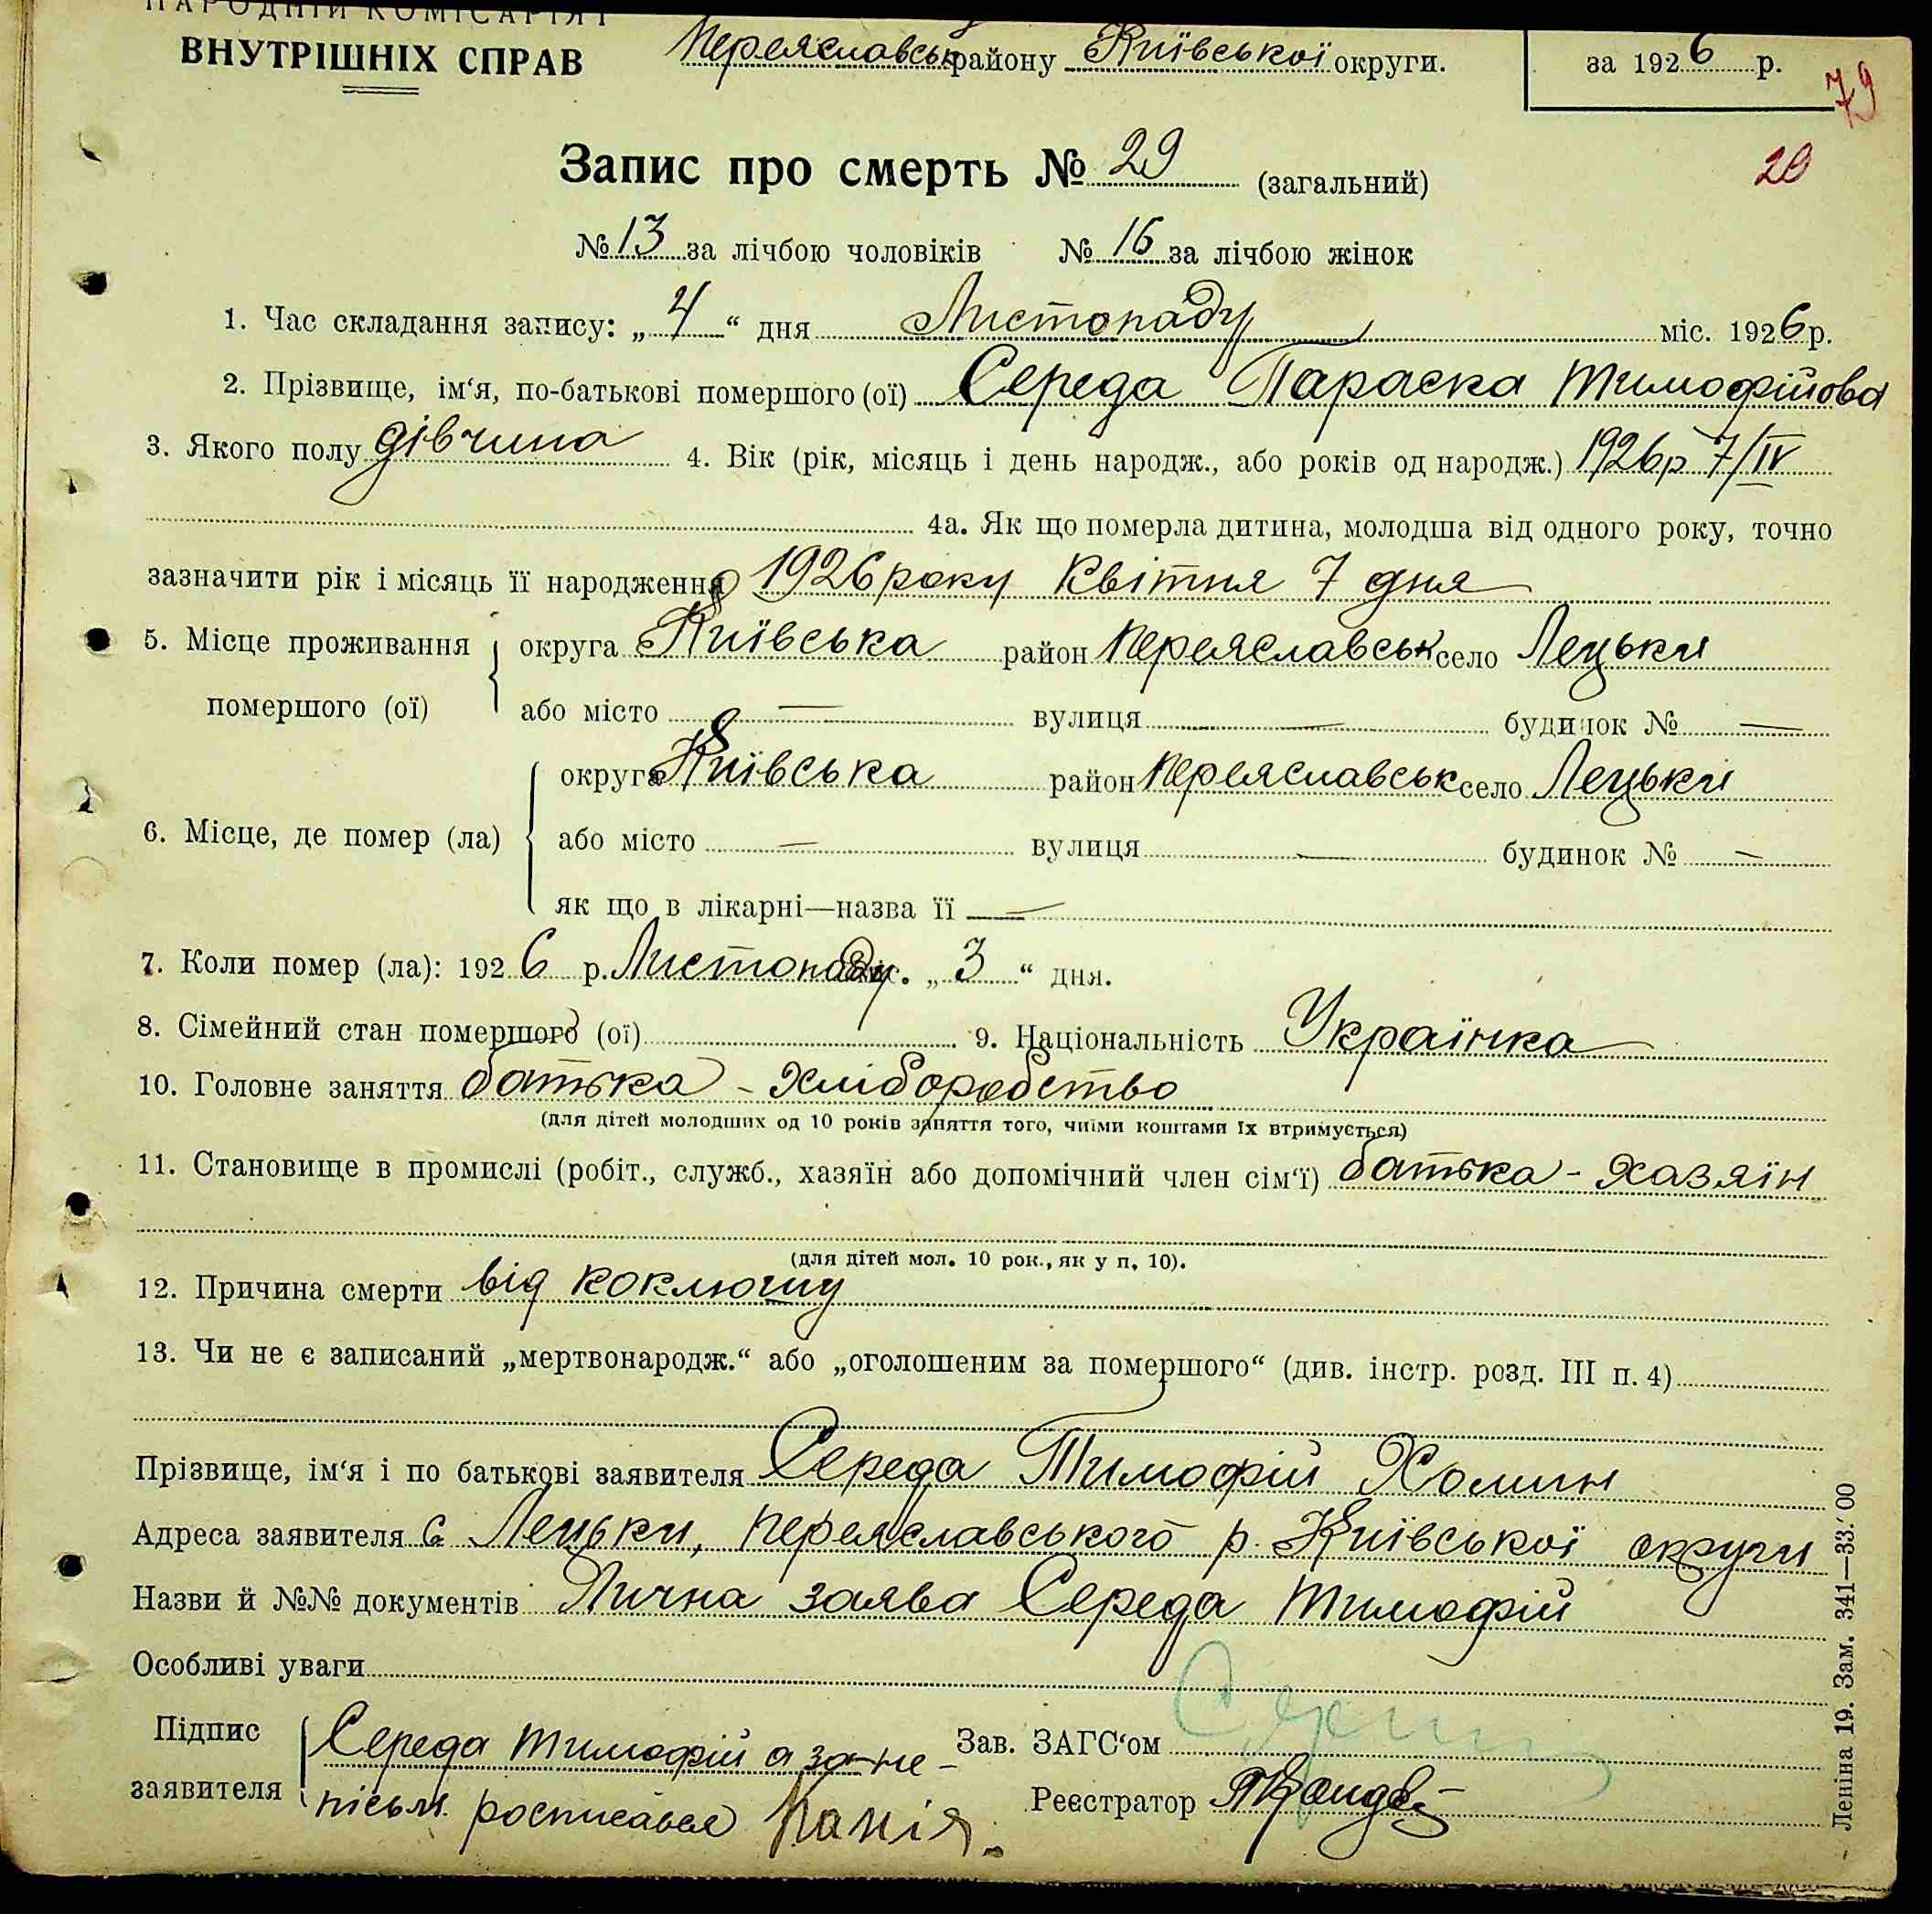 НАРОДНІЙ КОМІСАРІЯТ
ВНУТРІШНІХ СПРАВ
Переяславськ району Київської округи.
за 1926 р.
79
Запис про смерть № 29 (загальний)
29
№ 13 за лічбою чоловіків № 16 за лічбою жінок
1. Час складання запису: „4“ дня Листопаду міс. 1926 р.
2. Прізвище, ім‘я, по-батькові помершого (ої) Середа Параска Тимофійова
3. Якого полу дівчина 4. Вік (рік, місяць і день народж., або років од народж.) 1926р 7/IV
4а. Як що померла дитина, молодша від одного року, точно
зазначити рік і місяць її народження 1926 року Квітня 7 дня
5. Місце проживання помершого (ої) округа Київська район Переяславськ село Лецьки
або місто — вулиця — будинок № —
6. Місце, де помер (ла) округа Київська район Переяславськ село Лецьки
або місто — вулиця — будинок № —
як що в лікарні—назва її —
7. Коли помер (ла): 1926 р. Листопаду міс. „3“ дня.
8. Сімейний стан помершого (ої) 9. Національність Українка
10. Головне заняття батька - хліборобство
(для дітей молодших од 10 років заняття того, чиїми коштами їх втримується)
11. Становище в промислі (робіт., служб., хазяїн або допомічний член сім‘ї) батька - хазяїн
(для дітей мол. 10 рок., як у п. 10).
12. Причина смерти від коклюшу
13. Чи не є записаний „мертвонародж.“ або „оголошеним за помершого“ (див. інстр. розд. III п. 4)
Прізвище, ім‘я і по батькові заявителя Середа Тимофій Хомин
Адреса заявителя с. Лецьки, Переяславського р. Київської округи
Назви й №№ документів Лична заява Середа Тимофій
Особливі уваги
Підпис заявителя Середа Тимофій а за не-
письм. росписався
Зав. ЗАГС‘ом
Реєстратор
Леніна 19. Зам. 341—33.